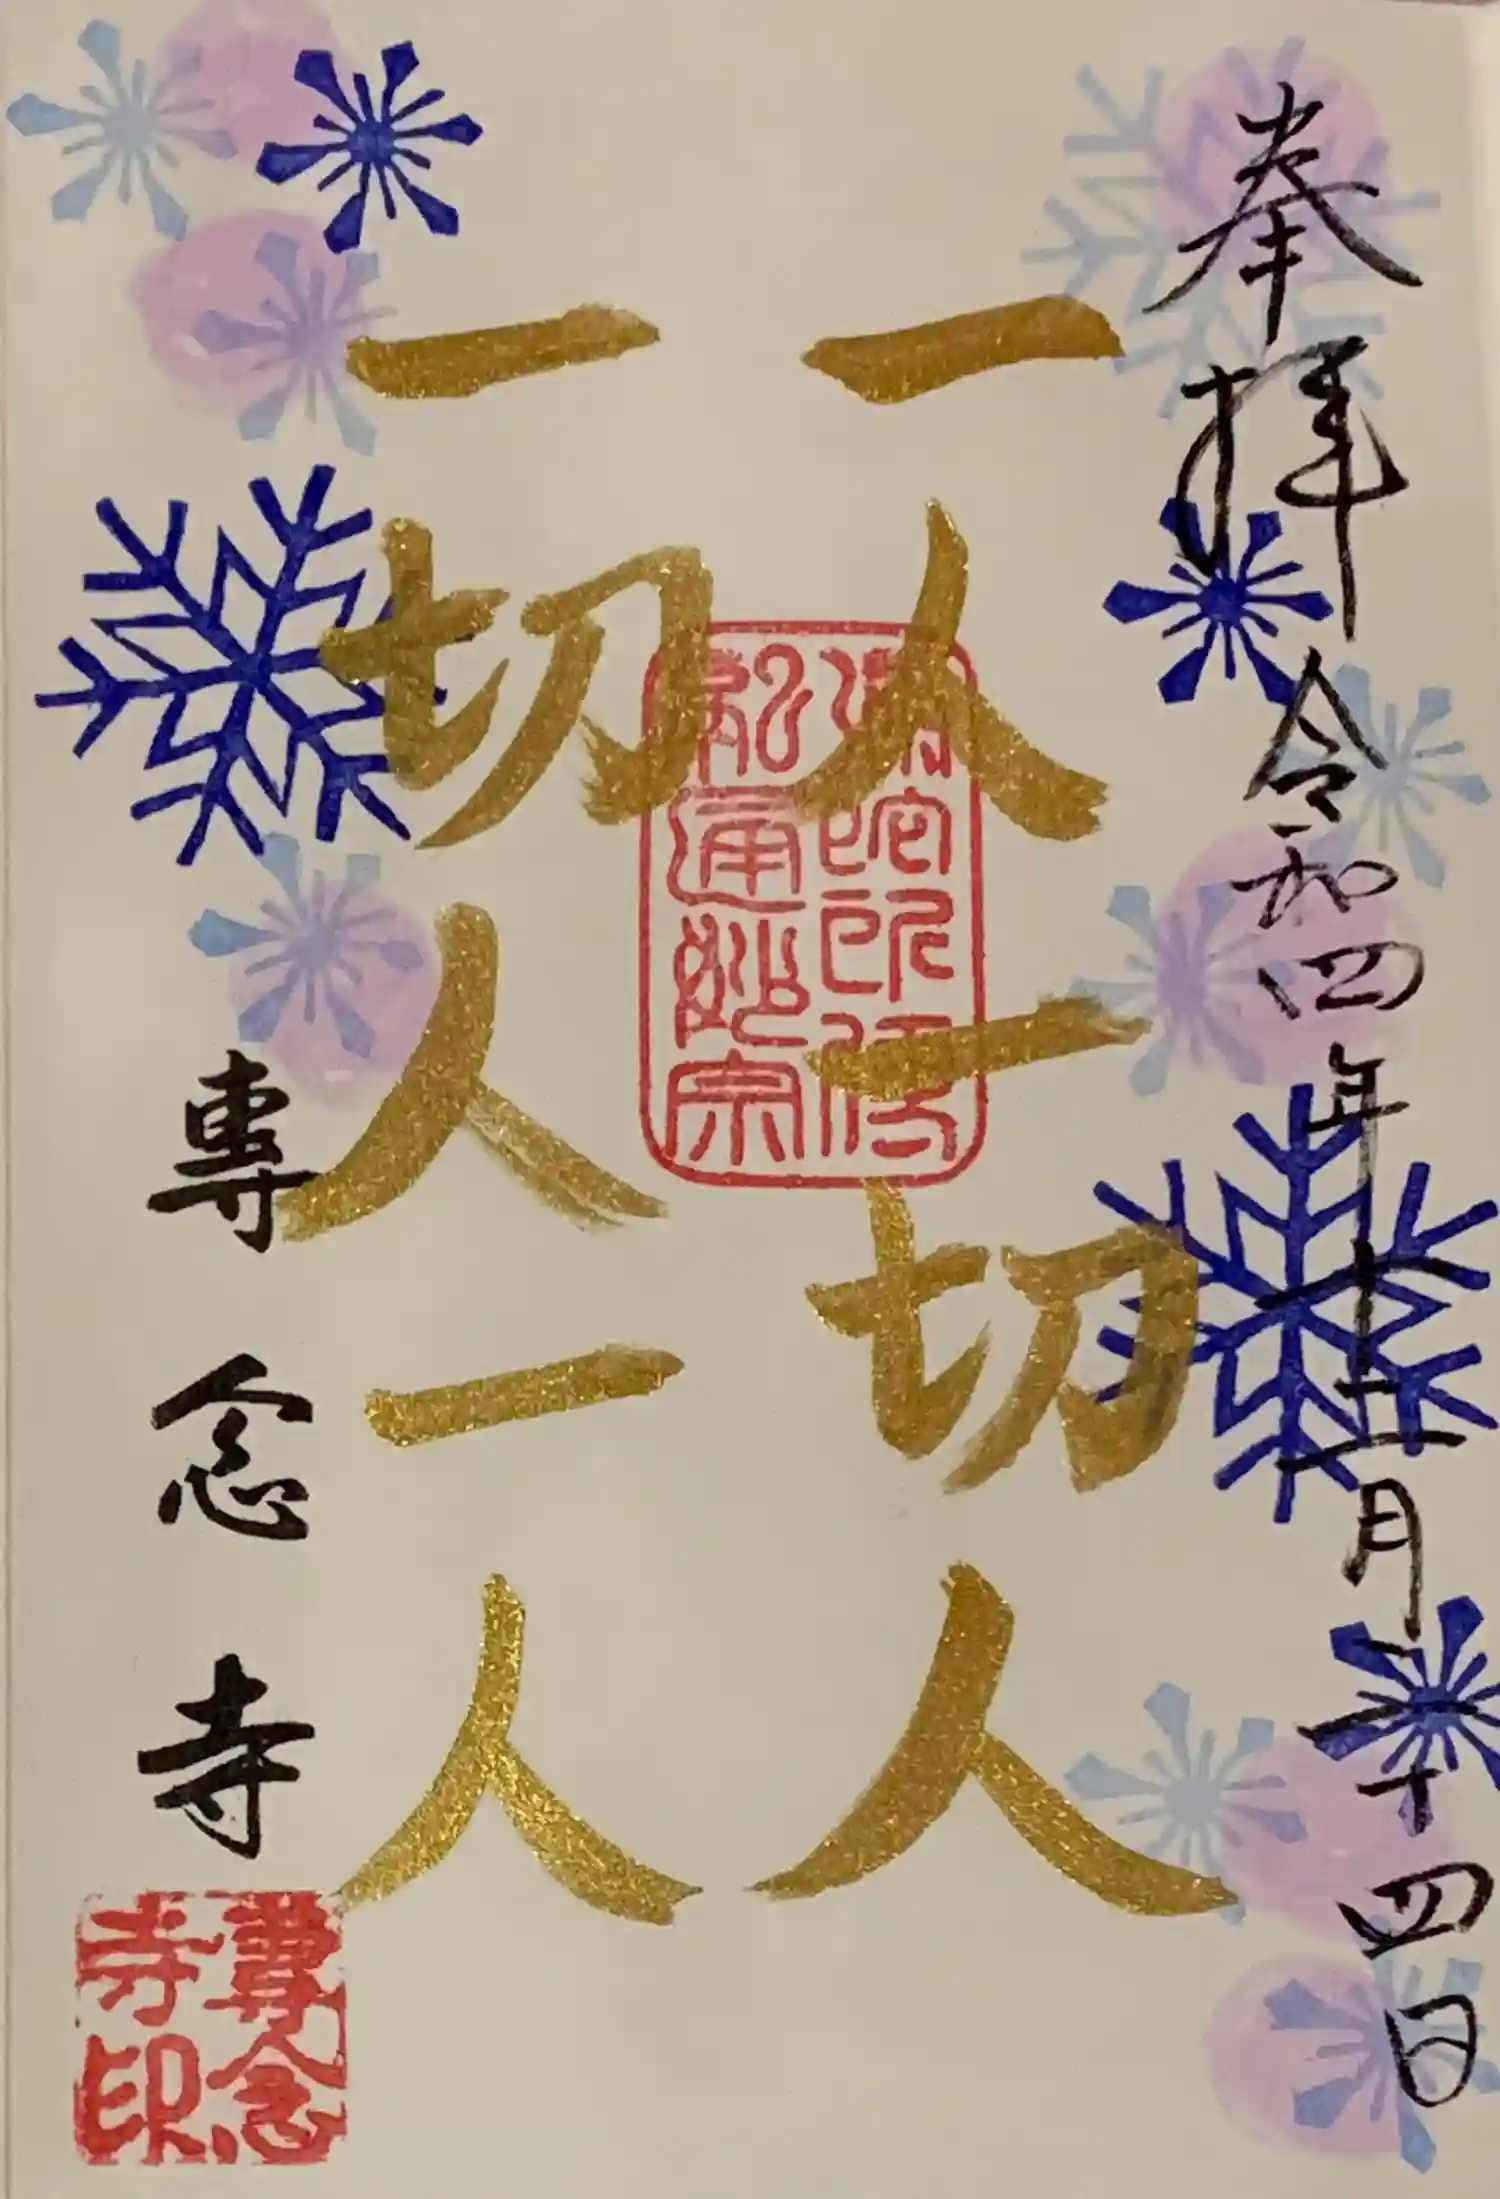 奉拝 令和四年十二月十四日
一人一切人
一切人一人
陀所
融通妙宗
專念寺
專念
寺印